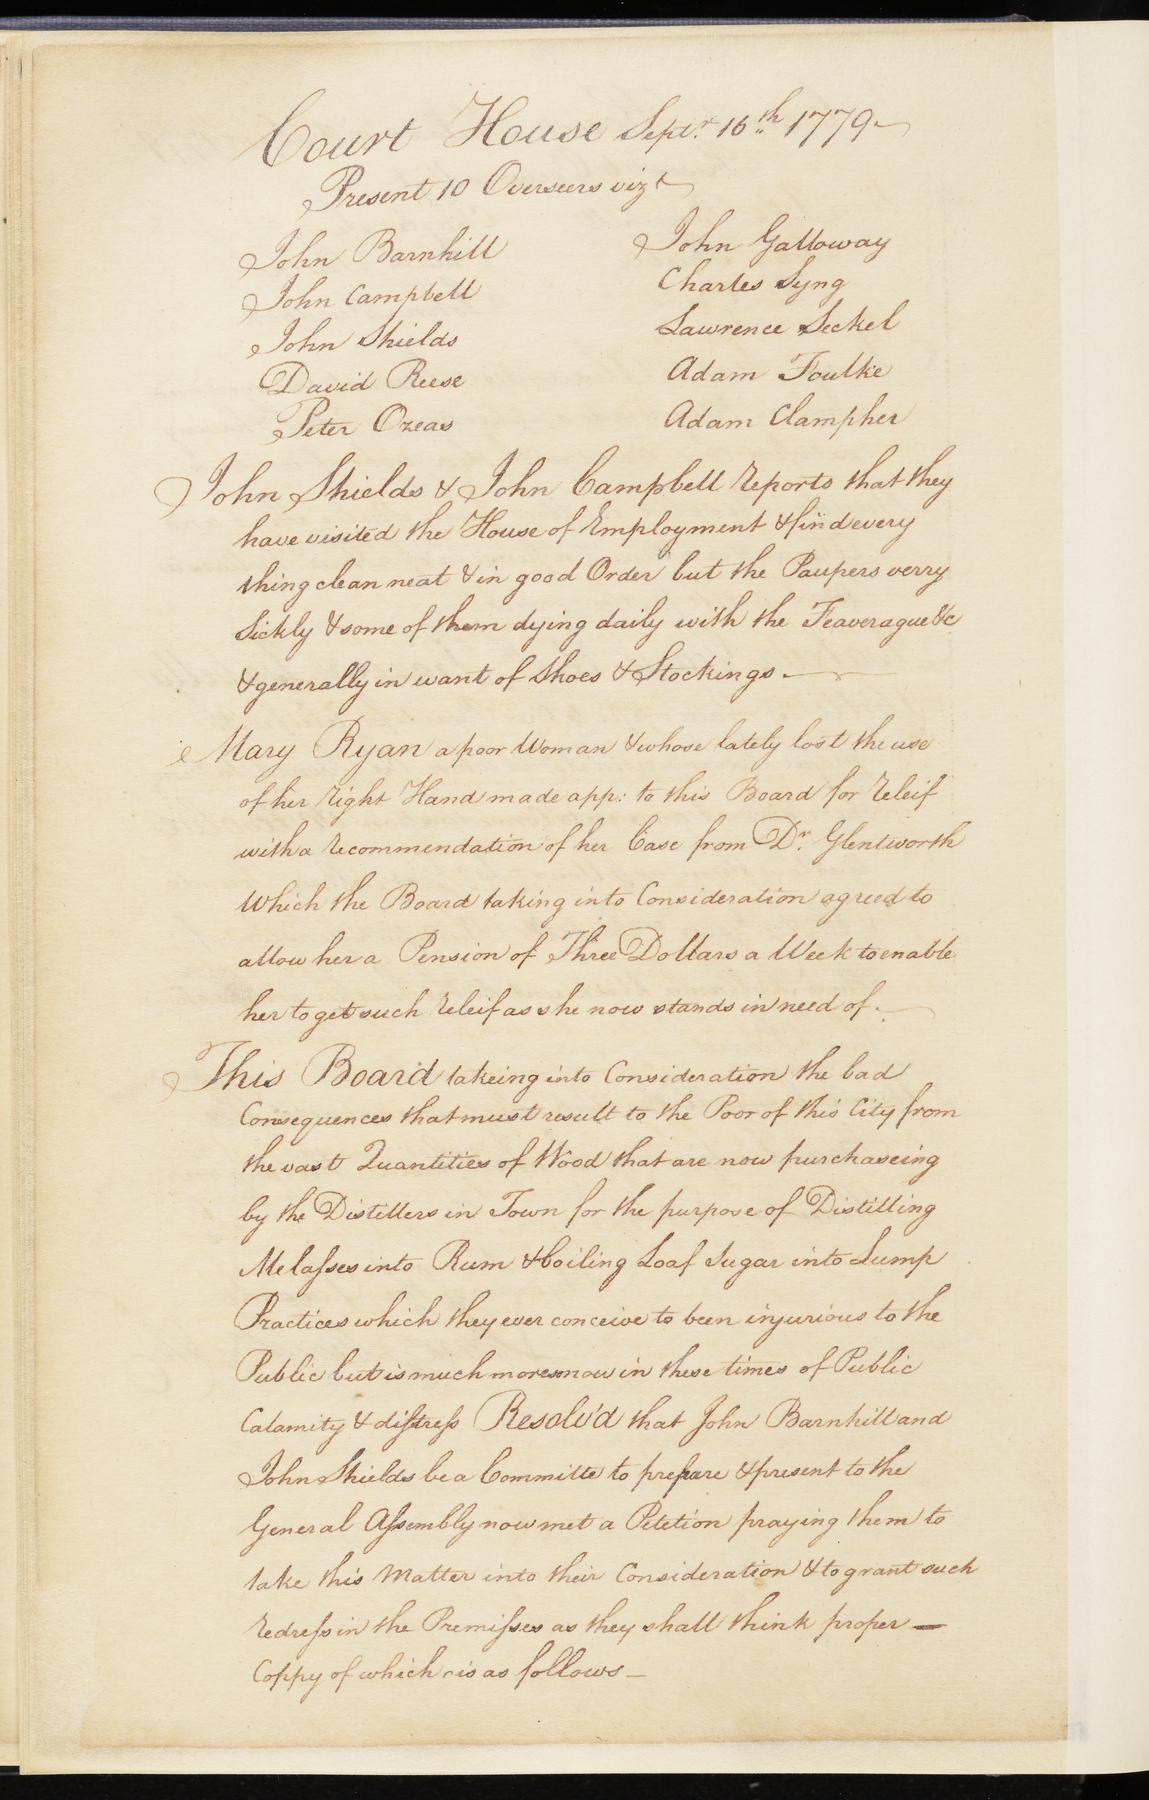 Court House Septr. 16th 1779
Present 10 Overseers vizt
John Barnhill
John Campbell
John Shields
David Reese
Peter Ozeas
John Galloway
Charles Syng
Lawrence Seckel
Adam Foulke
Adam Clampher
John Shields & John Campbell Reports that they
have visited the House of Employment & find every
thing clean neat & in good Order but the Paupers verry
Sickly & some of them dying daily with the Feaverague &c
& generally in want of Shoes & Stockings.
Mary Ryan a poor Woman & whose lately lost the use
of her Right Hand made app: to this Board for Releif
with a Recommendation of her Case from Dr. Glentworth
Which the Board taking into Consideration agreed to
allow her a Pension of Three Dollars a Week to enable
her to get such Releif as she now stands in need of.
This Board takeing into Consideration the bad
Consequences that must result to the Poor of this City from
the vast Quantities of Wood that are now purchaseing
by the Distillers in Town for the purpose of Distilling
Melasses into Rum & boiling Loaf Sugar into Lump
Practices which they ever conceive to been injurious to the
Public but is much more now in these times of Public
Calamity & distress Resolv'd that John Barnhill and
John Shields be a Committe to prepare & present to the
General Assembly now met a Petetion praying them to
take this Matter into their Consideration & to grant such
Redress in the Premisses as they shall think proper —
Coppy of which is as follows —